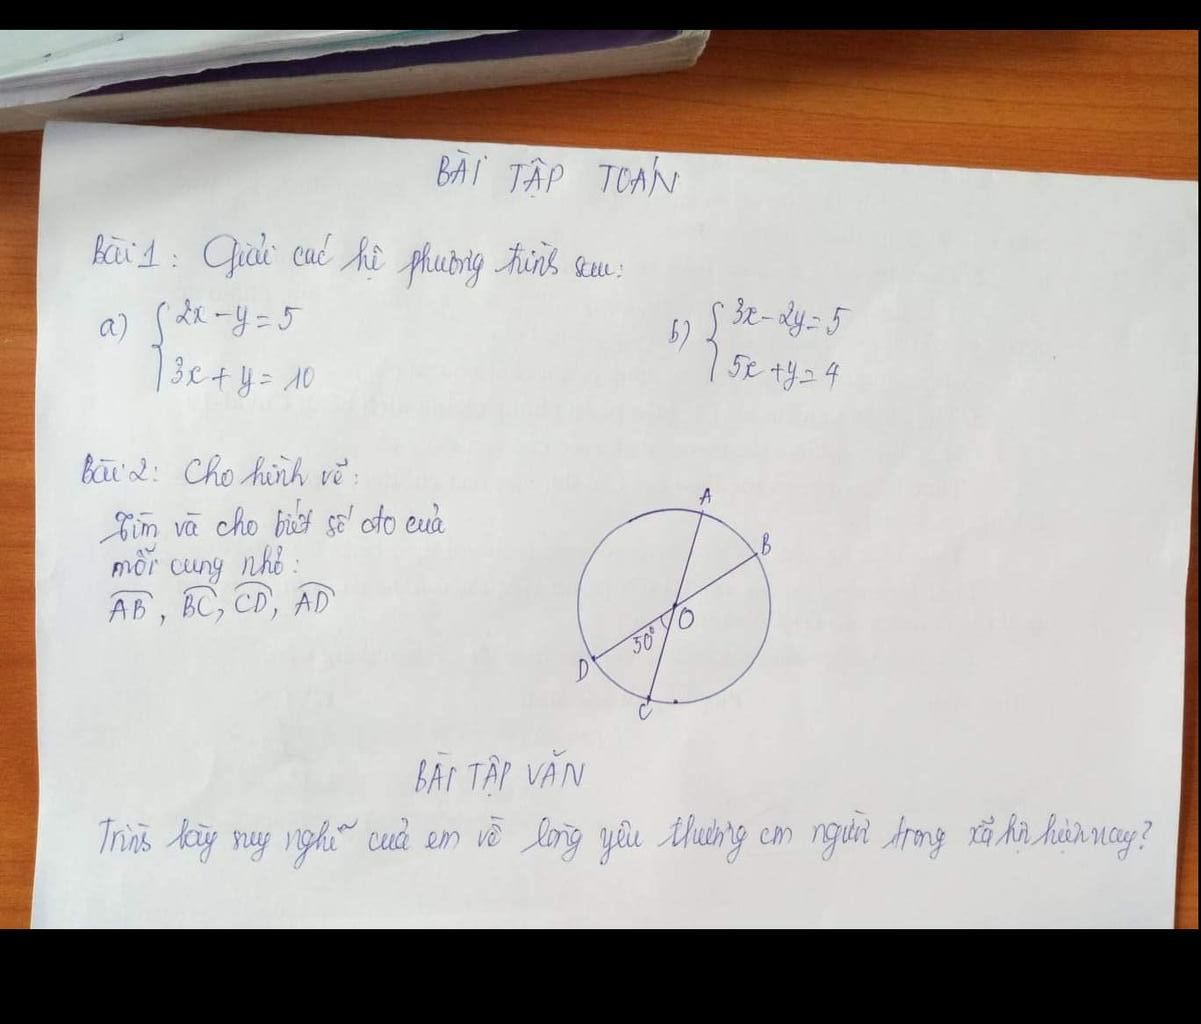 BÀI TẬP TOÁN
Bài 1: Giải các hệ phương trình sau:
a) { 2x - y = 5
3x + y = 10
b) { 3x - 2y = 5
5x + y = 4
Bài 2: Cho hình vẽ:
Tìm và cho biết số đo của
mỗi cung nhỏ:
AB, BC, CD, AD
A
B
O
50°
D
C
BÀI TẬP VĂN
Trình bày suy nghĩ của em về lòng yêu thương con người trong xã hội hiện nay?